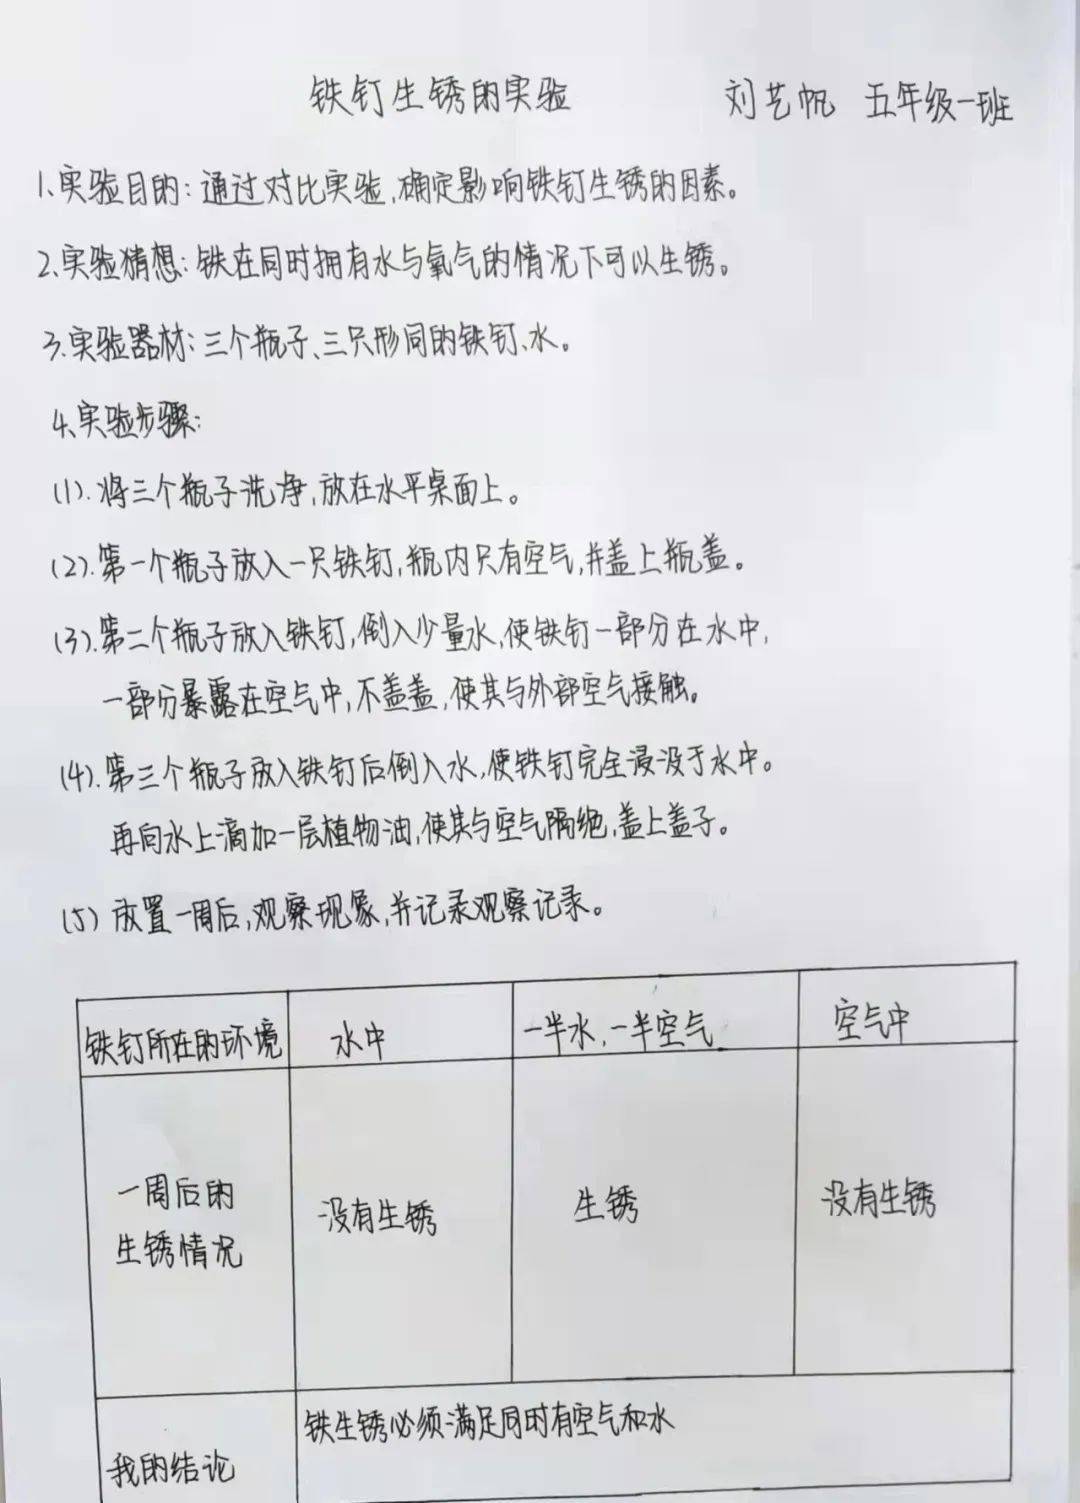 铁钉生锈的实验 刘艺帆 五年级一班
1.实验目的:通过对比实验,确定影响铁钉生锈的因素。
2.实验猜想:铁在同时拥有水与氧气的情况下可以生锈。
3.实验器材:三个瓶子、三只形同的铁钉、水。
4.实验步骤:
(1).将三个瓶子洗净,放在水平桌面上。
(2).第一个瓶子放入一只铁钉,瓶内只有空气,并盖上瓶盖。
(3).第二个瓶子放入铁钉,倒入少量水,使铁钉一部分在水中,
一部分暴露在空气中,不盖盖,使其与外部空气接触。
(4).第三个瓶子放入铁钉后倒入水,使铁钉完全浸没于水中。
再向水上滴加一层植物油,使其与空气隔绝,盖上盖子。
(5) 放置一周后,观察现象,并记录观察记录。
铁钉所在的环境 水中 一半水,一半空气 空气中
一周后的
生锈情况 没有生锈 生锈 没有生锈
我的结论 铁生锈必须满足同时有空气和水